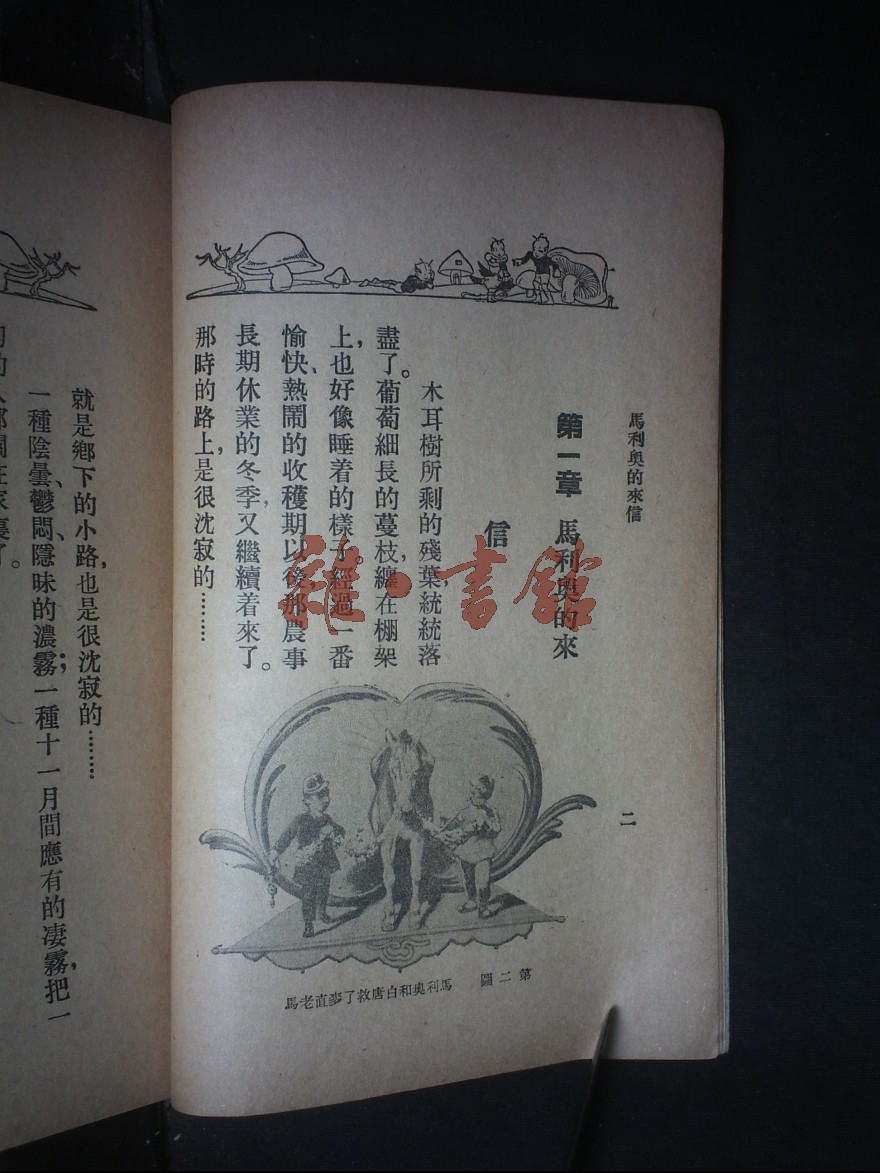 馬利奧的來信
第一章 馬利奧的來
信
木耳樹所剩的殘葉，統統落
盡了。葡萄細長的蔓枝，纏在棚架
上，也好像睡着的樣子。經過一番
愉快、熱鬧的收穫期以後，那農事
長期休業的冬季，又繼續着來了。
那時的路上，是很沈寂的………
二
第二圖 馬利奧和白唐救了麥直老馬
就是鄉下的小路，也是很沈寂的………
一種陰曇、鬱悶、隱昧的濃霧；一種十一月間應有的凄霧，把一
雜·書館